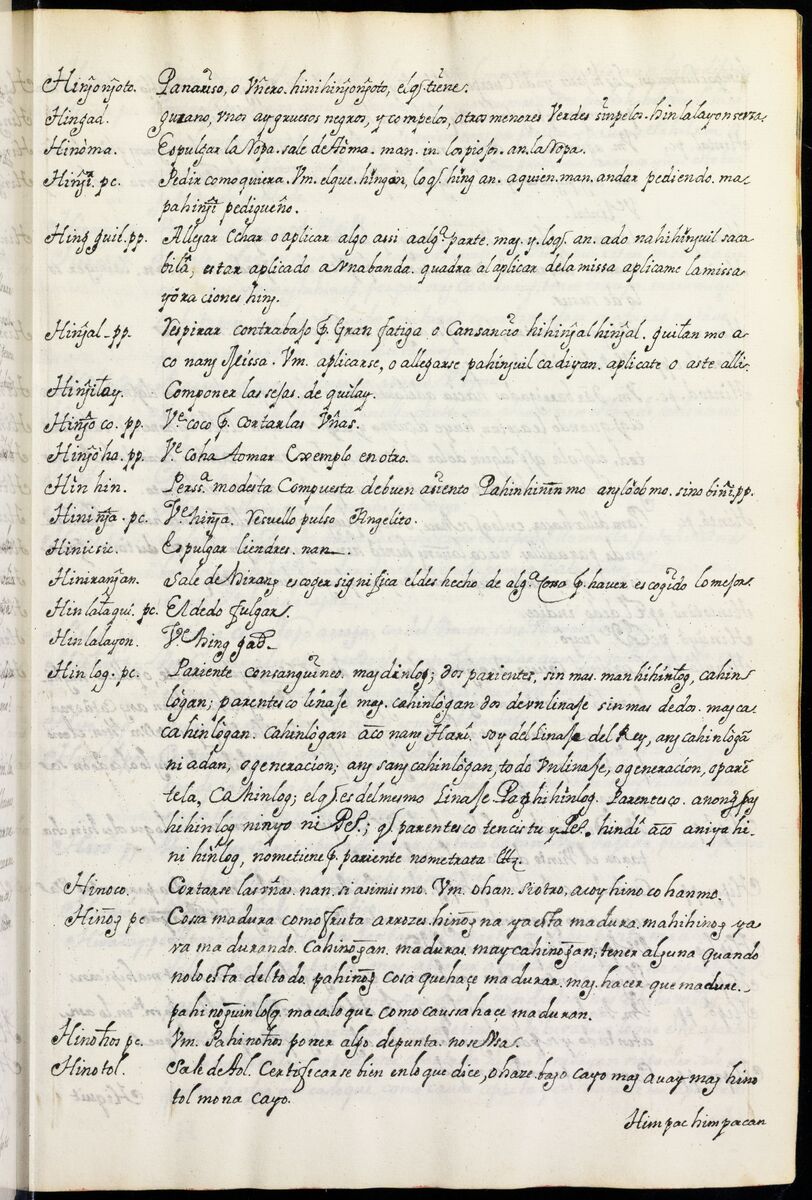 Hingongoto. Panariso, o Vñero. hini hingongoto, el q̃ tiene.
Hingad. gusano, vnos ay gruesos negros, y compelos, otros menores Verdes sin pelos. hin lalayon serra.
Hinòma. Espulgar la Ropa. sale de Tòma. man. in. los piojos. an. la Ropa.
Hingi. pc. Pedir como quiera. Vm. el que. hingin, lo q̃. hing an. a quien. man. andar pediendo. ma-
pahingi pedigueño.
Hing guil. pp. Allegar Echar o aplicar algo assi a alg.ª parte. mag. y. lo q̃. an. adonahihinguil saca
bilã, estar aplicado a Vna banda. quadra al aplicar de la missa aplicame la missa
y oraciones hing.
Hingal. pp. Respirar con trabajo p. Gran fatiga o Cansancio hihingal hingal. quitan mo a-
co nang Missa. Vm. aplicarse, o allegarse pahinguil ca diyan. aplicate o aste alli.
Hingilay. Componer las sejas. de quilay.
Hingo co. pp. Vᵉ coco p. cortar las Vñas.
Hingòha. pp. Vᵉ coha tomar Exemplo en otro.
Hin hin. Perss.ª modesta Compuesta de buen asiento Pahinhinin mo ang loòb mo. sino bini. pp.
Hininga. pc. Vᵉ hinga. Resuello pulso Angelito.
Hinicsic. Espulgar liendres. nan.
Hinirangan. Sale de Nirang escoger significa el des hecho de alg.ª cossa p. haver escogido lo mejor.
Hin lalaqui. pc. El dedo pulgar.
Hin lalayon. Vᵉ hing gad.
Hin log. pc. Pariente consanguineo. mag hinlog; dos parientes, sin mas. man hihinlog, cahin-
lògan; parentesco linaje mag. cahinlògan dos de vn linaje sin mas de dos. mag ca-
ca hinlògan. cahinlògan aco nang Hari. soy del Linaje del Rey, ang cahinlògã
ni adan, o generacion; ang sang cahinlogan, todo Vn linaje, o generacion, o parẽ
tela, Cahinlog; el q̃. es del mesmo Linaje. Pag hihinlog. Parentesco. anong pag
hihinlog ninyo ni P.º; q̃ parentesco teneis tu y P.º hindi aco aniya hi-
ni hinlog, no me tiene p. pariente no me trata Etta.
Hinoco. Cortarse las Vñas. nan. si asi mismo. Vm. o han. si otro, acoy hino co hanmo.
Hinog pc Cossa madura como fruta arrozes. hinog na ya esta madura. mahihinog ya
va madurando. Cahinogan. maduras. may cahinogan; tener alguna quando
no lo esta del todo. pahinog cosa que haçe madurar. mag. hacer que madure.
pahinoguin lo q̃. maca. lo que como caussa haçe maduran.
Hinothos pc. Vm. Pahinothos poner algo de punta. no se Vsa.
Hinotol. Sale de Tol. Certificarse bien en lo que dice, o haze. bago cayo mag auay mag hino
tol mo na cayo.
Himpac himpacan